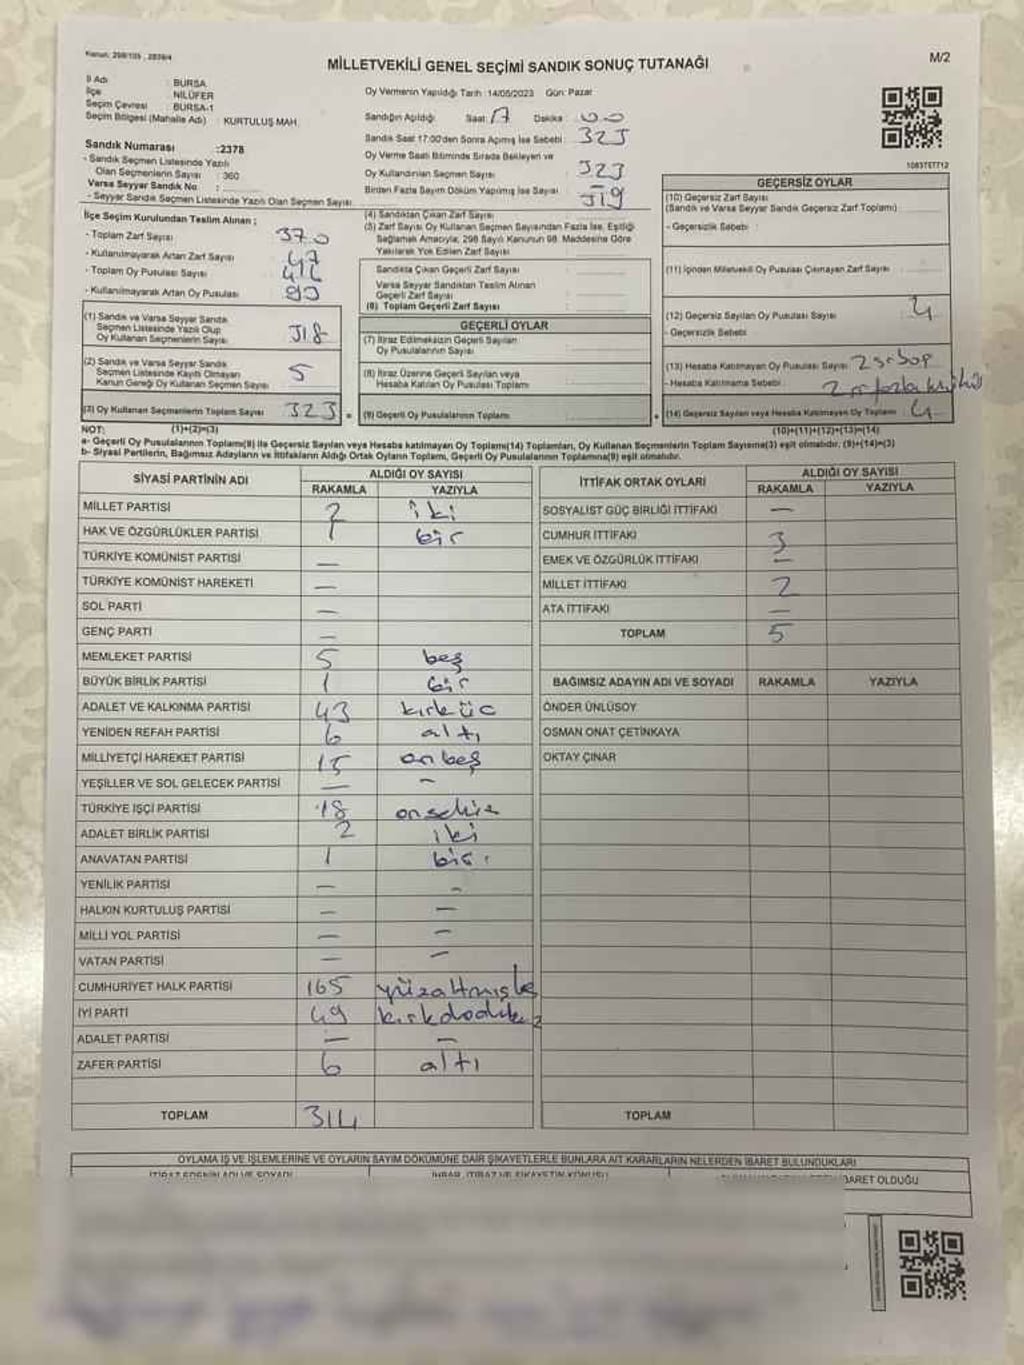 Kanun: 298/105, 2839/4
MİLLETVEKİLİ GENEL SEÇİMİ SANDIK SONUÇ TUTANAĞI
M/2
İl Adı : BURSA
İlçe : NİLÜFER
Seçim Çevresi : BURSA-1
Seçim Bölgesi (Mahalle Adı) : KURTULUŞ MAH.
Sandık Numarası :2378
- Sandık Seçmen Listesinde Yazılı
Olan Seçmenlerin Sayısı : 360
Varsa Seyyar Sandık No :
- Seyyar Sandık Seçmen Listesinde Yazılı Olan Seçmen Sayısı
Oy Vermenin Yapıldığı Tarih :14/05/2023 Gün: Pazar
Sandığın Açıldığı Saat: 17 Dakika : 00
Sandık Saat 17:00'den Sonra Açımış İse Sebebi : 323
Oy Verme Saati Bitiminde Sırada Bekleyen ve
Oy Kullandırılan Seçmen Sayısı : 323
Birden Fazla Sayım Döküm Yapılmış İse Sayısı : 319
1083757712
İlçe Seçim Kurulundan Teslim Alınan ;
- Toplam Zarf Sayısı : 370
- Kullanılmayarak Artan Zarf Sayısı : 47
- Toplam Oy Pusulası Sayısı :
- Kullanılmayarak Artan Oy Pusulası : 93
(1) Sandık ve Varsa Seyyar Sandık
Seçmen Listesinde Yazılı Olup
Oy Kullanan Seçmenlerin Sayısı : 318
(2) Sandık ve Varsa Seyyar Sandık
Seçmen Listesinde Kayıtlı Olmayan
Kanun Gereği Oy Kullanan Seçmen Sayısı : 5
(3) Oy Kullanan Seçmenlerin Toplam Sayısı : 323
(4) Sandıktan Çıkan Zarf Sayısı
(5) Zarf Sayısı Oy Kullanan Seçmen Sayısından Fazla İse, Eşitliği
Sağlamak Amacıyla, 298 Sayılı Kanunun 98. Maddesine Göre
Yakılarak Yok Edilen Zarf Sayısı
Sandıkta Çıkan Geçerli Zarf Sayısı
Varsa Seyyar Sandıktan Teslim Alınan
Geçerli Zarf Sayısı
(6) Toplam Geçerli Zarf Sayısı
GEÇERLİ OYLAR
(7) İtiraz Edilmeksizin Geçerli Sayılan
Oy Pusulalarının Sayısı
(8) İtiraz Üzerine Geçerli Sayılan veya
Hesaba Katılan Oy Pusulası Toplamı
(9) Geçerli Oy Pusulalarının Toplamı
GEÇERSİZ OYLAR
(10) Geçersiz Zarf Sayısı
(Sandık ve Varsa Seyyar Sandık Geçersiz Zarf Toplamı)
- Geçersizlik Sebebi :
(11) İçinden Milletvekili Oy Pusulası Çıkmayan Zarf Sayısı
(12) Geçersiz Sayılan Oy Pusulası Sayısı : 4
- Geçersizlik Sebebi
(13) Hesaba Katılmayan Oy Pusulası Sayısı
- Hesaba Katılmama Sebebi
(14) Geçersiz Sayılan veya Hesaba Katılmayan Oy Toplamı : 4
NOT: (1)+(2)=(3) (10)+(11)+(12)+(13)=(14)
a- Geçerli Oy Pusulalarının Toplamı(9) ile Geçersiz Sayılan veya Hesaba katılmayan Oy Toplamı(14) Toplamları, Oy Kullanan Seçmenlerin Toplam Sayısına(3) eşit olmalıdır. (9)+(14)=(3)
b- Siyasi Partilerin, Bağımsız Adayların ve İttifakların Aldığı Ortak Oyların Toplamı, Geçerli Oy Pusulalarının Toplamına(9) eşit olmalıdır.
SİYASİ PARTİNİN ADI ALDIĞI OY SAYISI
RAKAMLA YAZIYLA
MİLLET PARTİSİ 2 iki
HAK VE ÖZGÜRLÜKLER PARTİSİ 1 bir
TÜRKİYE KOMÜNİST PARTİSİ —
TÜRKİYE KOMÜNİST HAREKETİ —
SOL PARTİ —
GENÇ PARTİ —
MEMLEKET PARTİSİ 5 beş
BÜYÜK BİRLİK PARTİSİ 1 bir
ADALET VE KALKINMA PARTİSİ 43 kırküç
YENİDEN REFAH PARTİSİ 6 altı
MİLLİYETÇİ HAREKET PARTİSİ 15 onbeş
YEŞİLLER VE SOL GELECEK PARTİSİ — —
TÜRKİYE İŞÇİ PARTİSİ 18 onsekiz
ADALET BİRLİK PARTİSİ 2 iki
ANAVATAN PARTİSİ 1 bir
YENİLİK PARTİSİ — —
HALKIN KURTULUŞ PARTİSİ — —
MİLLİ YOL PARTİSİ — —
VATAN PARTİSİ — —
CUMHURİYET HALK PARTİSİ 165 yüzaltmışbeş
İYİ PARTİ 49 kırkdokuz
ADALET PARTİSİ — —
ZAFER PARTİSİ 6 altı
TOPLAM 314
İTTİFAK ORTAK OYLARI ALDIĞI OY SAYISI
RAKAMLA YAZIYLA
SOSYALİST GÜÇ BİRLİĞİ İTTİFAKI —
CUMHUR İTTİFAKI 3
EMEK VE ÖZGÜRLÜK İTTİFAKI —
MİLLET İTTİFAKI 2
ATA İTTİFAKI —
TOPLAM 5
BAĞIMSIZ ADAYIN ADI VE SOYADI RAKAMLA YAZIYLA
ÖNDER ÜNLÜSOY
OSMAN ONAT ÇETİNKAYA
OKTAY ÇINAR
TOPLAM
OYLAMA İŞ VE İŞLEMLERİNE VE OYLARIN SAYIM DÖKÜMÜNE DAİR ŞİKAYETLERLE BUNLARA AİT KARARLARIN NELERDEN İBARET BULUNDUKLARI
İTİRAZ EDENİN ADI VE SOYADI İHBAR, İTİRAZ VE ŞİKAYETİN KONUSU BARET OLDUĞU